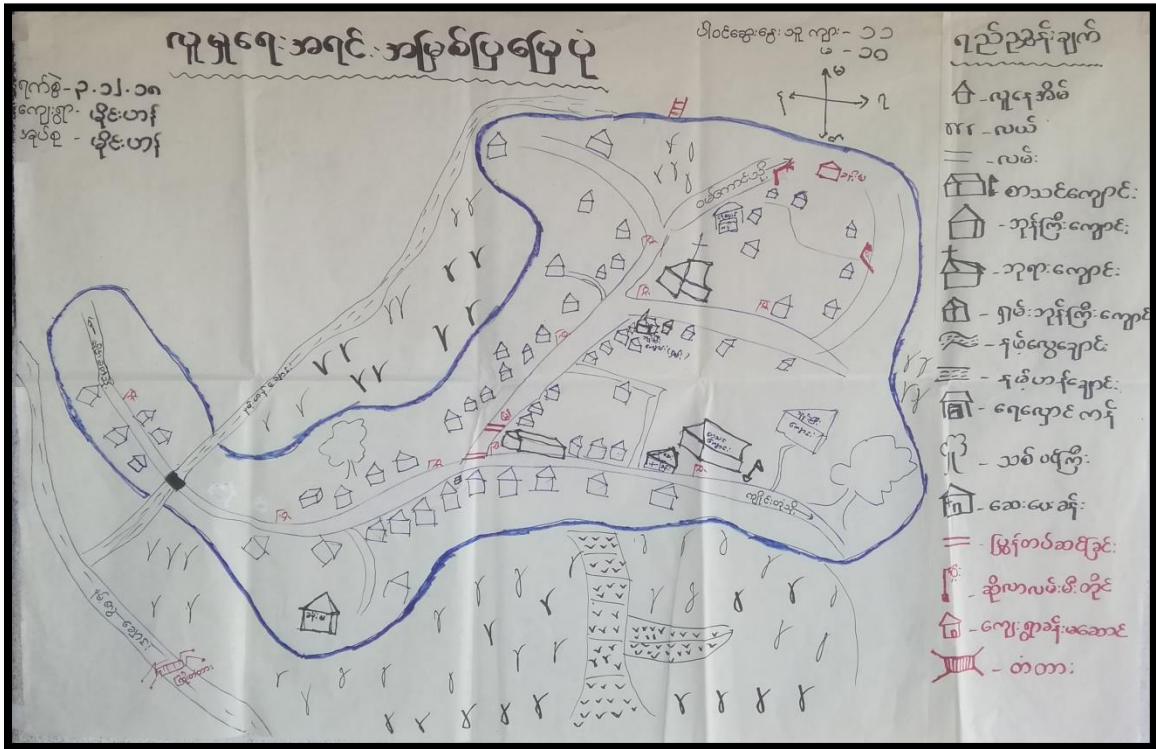 လူမှုရေးအရင်းအမြစ်ပြမြေပုံ
ပါဝင်ဆွေးနွေးသူ ကျား - ၁၁
မ - ၁၀
ရက်စွဲ - ၃.၁၂.၁၈
ကျေးရွာ - မိုင်းဟန်
အုပ်စု - မိုင်းဟန်
ရည်ညွှန်းချက်
လူနေအိမ်
လယ်
လမ်း
စာသင်ကျောင်း
ဘုန်းကြီးကျောင်း
ဘုရားကျောင်း
ရှမ်းဘုန်းကြီးကျောင်း
နမ့်လွေချောင်း
နမ့်ဟန်ချောင်း
ရေလှောင်ကန်
သစ်ပင်ကြီး
ဆေးပေးခန်း
မြွန်တပ်ဆင်ခြင်း
ဆိုလာလမ်းမီးတိုင်
ကျေးရွာခန်းမဆောင်
တံတား
ကျိုင်းတုံသို့
ကြိုးတံတား